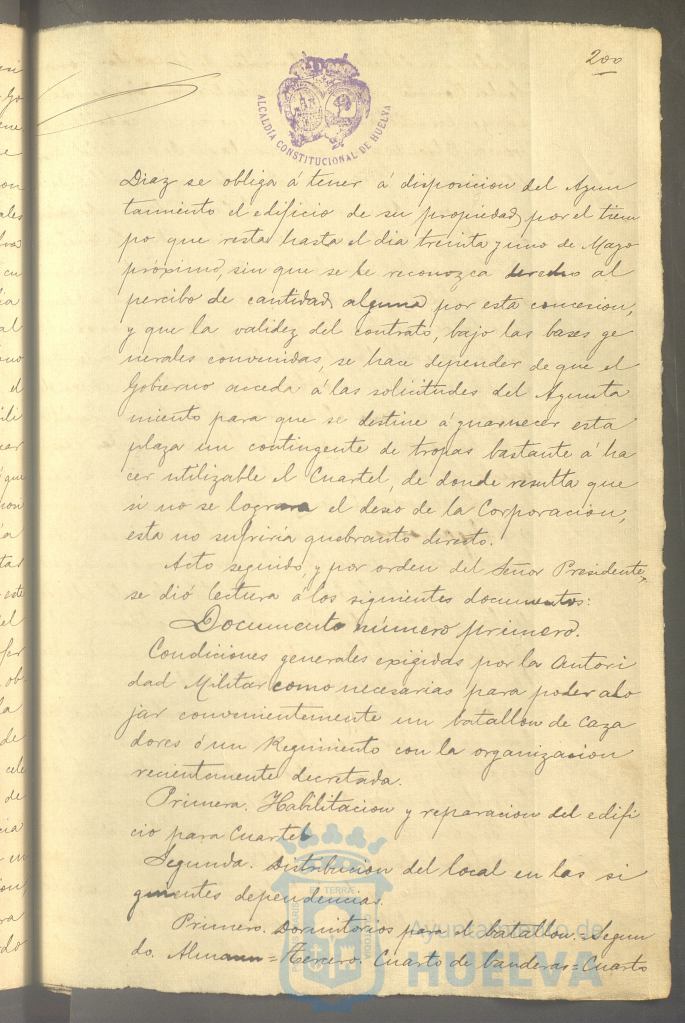 200
ALCALDÍA CONSTITUCIONAL DE HUELVA
Diaz se obliga á tener á disposicion del Ayun
tamiento el edificio de su propiedad, por el tiem
po que resta hasta el dia treinta y uno de Mayo
próximo, sin que se le reconozca derecho al
percibo de cantidad alguna por esta concesion,
y que la validez del contrato, bajo las bases ge
nerales convenidas, se hace depender de que el
Gobierno acceda á las solicitudes del Ayunta
miento para que se destine á guarnecer esta
plaza un contingente de tropas bastante á ha
cer utilizable el Cuartel, de donde resulta que
si no se lograra el deseo de la Corporacion,
esta no sufriria quebranto directo.
Acto seguido, y por orden del Señor Presidente,
se dió lectura á los siguientes documentos:
Documento número primero.
Condiciones generales exigidas por la Autori
dad Militar como necesarias para poder alo
jar convenientemente un batallon de Caza
dores ó un Regimiento con la organizacion
recientemente decretada.
Primera. Habilitacion y reparacion del edifi
cio para Cuartel.
Segunda. Distribucion del local en las si
guientes dependencias.
Primero. Dormitorios para el batallon.=Segun
do. =Tercero. Cuarto de banderas=Cuarto
Ayuntamiento de
HUELVA